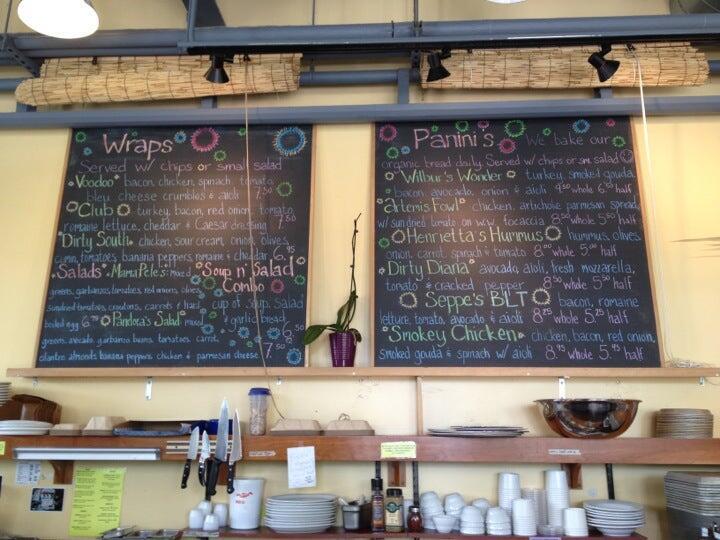 Wraps
Served w/ chips or small salad
Voodoo bacon, chicken, spinach tomato,
bleu cheese crumbles & aioli 7.50
Club turkey, bacon, red onion, tomato,
romaine lettuce, cheddar & Caesar dressing 7.50
Dirty South chicken, sour cream, onion, olives,
corn, tomatoes, banana peppers, romaine & cheddar 6.95
Salads
Mama Pele's: mixed
greens, garbanzos, tomatoes, red onions, olives,
sundried tomatoes, croutons, carrots & hard
boiled egg 6.75
Pandora's Salad mixed
greens, avocado, garbanzo beans, tomatoes, carrot,
cilantro, almonds, banana peppers, chicken & parmesan cheese 7.50
Soup n' Salad
Combo
cup of soup, salad
& garlic bread
6.50
Panini's We bake our
organic bread daily. Served w/ chips or sm. salad
Wilbur's Wonder turkey, smoked gouda,
bacon, avocado, onion & aioli 9.50 whole 6.50 half
Artemis Fowl chicken, artichoke parmesan spread,
w/ sun dried tomato on w.w. focaccia 8.50 whole 5.50 half
Henrietta's Hummus hummus, olives,
onion, carrot, spinach & tomato 8.00 whole 5.00 half
Dirty Diana avocado, aioli, fresh mozzarella,
tomato & cracked pepper 8.50 whole 5.50 half
Seppe's BLT bacon, romaine
lettuce, tomato, avocado & aioli 8.25 whole 5.25 half
Smokey Chicken chicken, bacon, red onion,
smoked gouda & spinach w/ aioli 8.95 whole 5.95 half